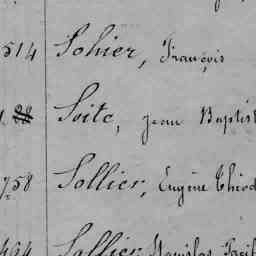 514 Sohier, François
Soite, Jean Baptist
758 Sollier, Eugène Théod
494 Sollier Stanislas